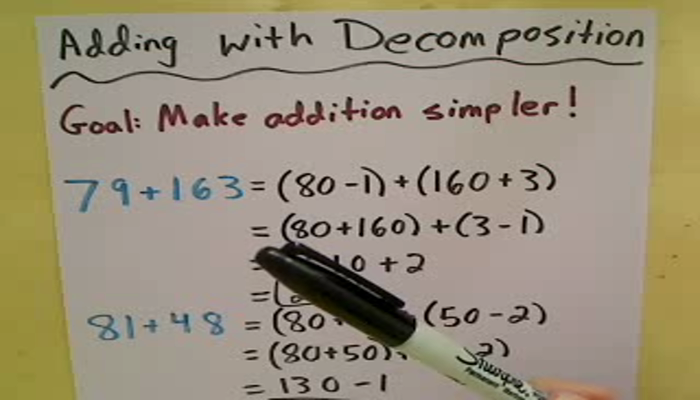 Adding with Decomposition
Goal: Make addition simpler!
79+163 = (80-1)+(160+3)
= (80+160)+(3-1)
= 40 + 2
=
81+48 = (80+ (50-2)
= (80+50)+ 2)
= 130 - 1
Sharpie